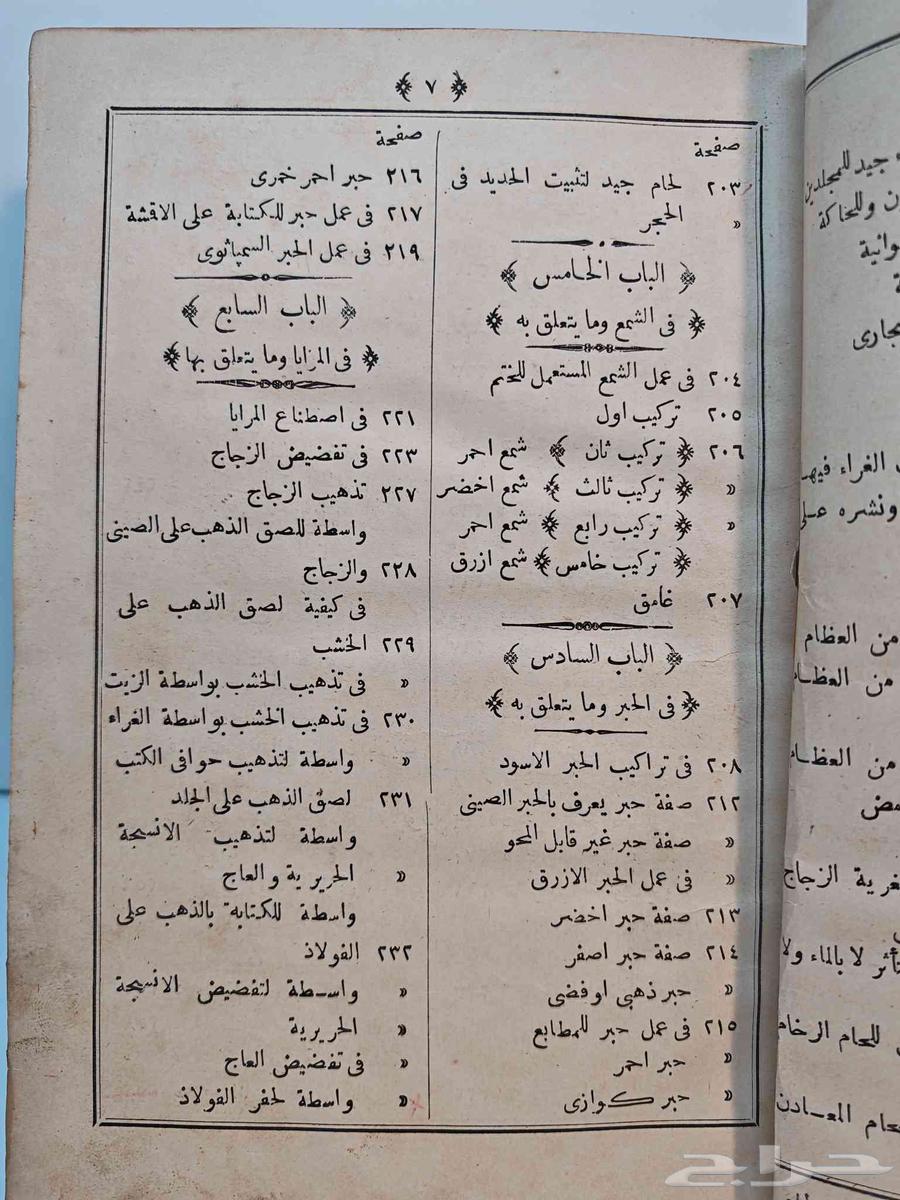 ﴿ ٧ ﴾
صفحة
٢٠٣ لحام جيد لتثبيت الحديد فى
» الحجر
﴿ الباب الخامس ﴾
﴿ فى الشمع وما يتعلق به ﴾
٢٠٤ فى عمل الشمع المستعمل للختم
٢٠٥ تركيب اول
٢٠٦ ﴿ تركيب ثان ﴾ شمع احمر
» ﴿ تركيب ثالث ﴾ شمع اخضر
» ﴿ تركيب رابع ﴾ شمع احمر
﴿ تركيب خامس ﴾ شمع ازرق
٢٠٧ غامق
﴿ الباب السادس ﴾
﴿ فى الحبر وما يتعلق به ﴾
٢٠٨ فى تراكيب الحبر الاسود
٢١٢ صفة حبر يعرف بالحبر الصينى
» صفة حبر غير قابل المحو
» فى عمل الحبر الازرق
٢١٣ صفة حبر اخضر
٢١٤ صفة حبر اصفر
» حبر ذهبى او فضى
٢١٥ فى عمل حبر للمطابع
» حبر احمر
» حبر كوازى
صفحة
٢١٦ حبر احمر خمرى
٢١٧ فى عمل حبر للكتابة على الاقشة
٢١٩ فى عمل الحبر السمپاثوى
﴿ الباب السابع ﴾
﴿ فى المرايا وما يتعلق بها ﴾
٢٢١ فى اصطناع المرايا
٢٢٣ فى تفضيض الزجاج
٢٢٧ تذهيب الزجاج
واسطة للصق الذهب على الصينى
٢٢٨ والزجاج
فى كيفية لصق الذهب على
٢٢٩ الخشب
» فى تذهيب الخشب بواسطة الزيت
٢٣٠ فى تذهيب الخشب بواسطة الغراء
» واسطة لتذهيب حوافى الكتب
٢٣١ لصق الذهب على الجلد
واسطة لتذهيب الانسجة
» الحريرية والعاج
واسطة للكتابة بالذهب على
٢٣٢ الفولاذ
» واسطة لتفضيض الانسجة
» الحريرية
» فى تفضيض العاج
» واسطة لحفر الفولاذ
جيد للمجلدين
وللحاكة
الغراء فيها
ونشره على
من العظام
من العظام
من العظام
الزجاج
لا بالماء ولا
للحام الرخام
المعادن
حراج